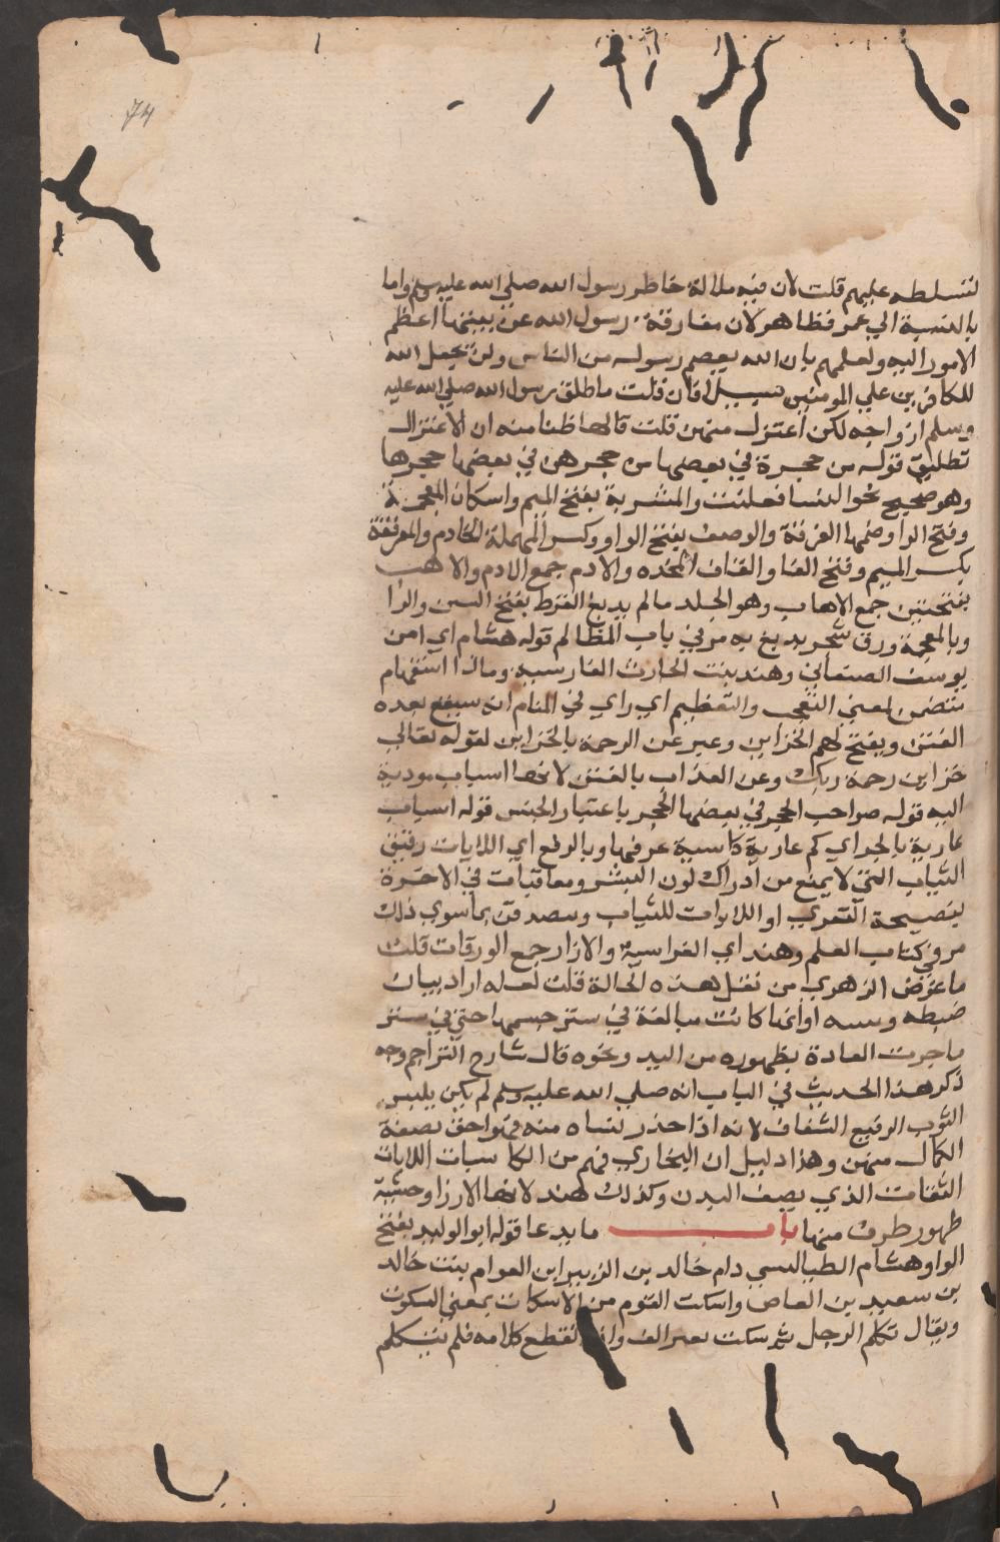 74
لتسلطه عليهم قلت لان فيه ملالة خاطر رسول الله صلي الله عليه وسلم واما
بالنسبة الي عمر فظاهر لان مفارقة رسول الله عن بيتنها اعظم
الامور اليه ولعلمهم بان الله يعصم رسوله من الناس ولن يجعل الله
للكافرين علي المومنين سبيلا فان قلت ماطلق رسول الله صلي الله عليه
وسلم ازواجه لكن اعتزل منهن قلت قالها ظنا منه ان الاعتزال
تطليق قوله من حجرة في بعضها من حجرهن في بعضها حجرها
وهو صحيح نحو النسا فعلتت والمشربة بفتح الميم واسكان المعجمة
وفتح الرا وضمها الغرفة والوصف بفتح الواو وكسر المهملة الخادم والمرفقة
بكسر الميم وفتح الفا والقاف المخده والادم جمع الادم والاهب
بفتحتين جمع الاهاب وهو الجلد مالم يدبغ القرظ بفتح السين والرا
وبالمعجمة ورق شجر يدبغ به مر في باب المظالم قوله هشام اي ابن
يوسف الصنعاني وهند بنت الحارث الفارسية وماذا استفهام
متضمن لمعني التعجب والتعظيم اي راي في المنام انه سيقع بعده
الفتن ويفتح لهم الخزاين وعبر عن الرحمة بالخزاين لقوله تعالي
خزاين رحمة ربك وعن العذاب بالفتن لانها اسباب مودية
اليه قوله صواحب الحجر في بعضها الحجر باعتبار الجنس قوله اسباب
عارية بالجر اي كم عارية كاسية عرفتها وبالرفع اي اللابات رقيق
الثياب التي لا يمنع من ادراك لون البشر ومعاقبات في الاخرة
بفضيحة التعري او اللابوات للثياب بما سوي ذلك
مر في كتاب العلم وهند اي الفراسية والازار جمع الورقات قلت
ما غرض الزهري من نقل هذه الحالة قلت لعله اراد بيان
ضبطه او انها كانت مبالغة في ستر جسمها حتي في ستر
ما جرت العادة بظهوره من اليد ونحوه قال شارح التراجم وجه
ذكر هذا الحديث في الباب انه صلي الله عليه وسلم لم يكن يلبس
الثوب الرفيع الشفاف لانه اذا حذر نساه منه فهو احق بصفة
الكمال منهن وهذا دليل ان البخاري فهم من الكاسيات اللابات
الذي يصف البدن وكذلك هند لانها الازرار خشية
ظهور طرف منها باب ما يدعا قوله ابو الوليد بفتح
الواو هشام الطيالسي وام خالد بن الزبير ابن العوام بنت خالد
بن سعيد بن العاص واسكت القوم من الاسكات بمعني السكوت
ويقال تكلم الرجل ثم سكت بغير الف انقطع كلامه فلم يتكلم